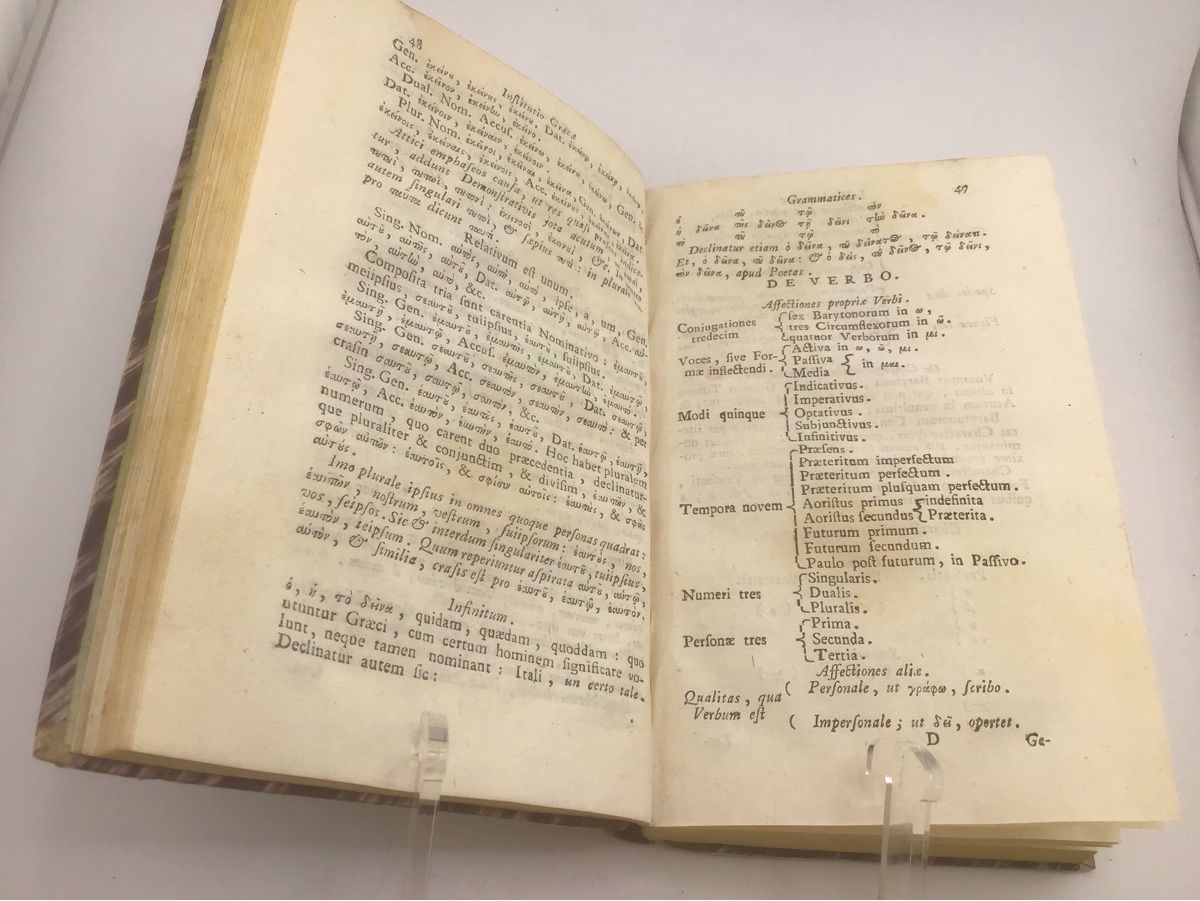 48
Institutio Græcæ
Gen. ἐκείνου, ἐκείνης, ἐκείνου, Dat. ἐκείνῳ, ἐκείνῃ, ἐκείνῳ
Acc. ἐκεῖνον, ἐκείνην, ἐκεῖνο.
Dual. Nom. Accus. ἐκείνω, ἐκείνα, ἐκείνω, Gen. &
Dat. ἐκείνοιν, ἐκείναιν, ἐκείνοιν.
Plur. Nom. ἐκεῖνοι, ἐκεῖναι, ἐκεῖνα, Gen. ἐκείνων, Dat.
ἐκείνοις, ἐκείναις, ἐκείνοις, Acc. ἐκείνους, ἐκείνας, ἐκεῖνα.
Attici emphaseos causa, ut res quasi præsens indice-
tur, addunt Demonstrativis jota acutum,
autem singulari & sæpius in plurali
pro ταῦτα dicunt
Relativum est unum,
Sing. Nom. αὐτὸς, αὐτὴ, αὐτὸ, ipse, a, um, Gen.
αὐτοῦ, αὐτῆς, αὐτοῦ, Dat. αὐτῷ, αὐτῇ, αὐτῷ, Acc. αὐ-
τὸν, αὐτὴν, αὐτὸ, &c.
Composita tria sunt carentia Nominativo: ἐμαυτοῦ,
meiipsius, σεαυτοῦ, tuiipsius, ἑαυτοῦ, suiipsius.
Sing. Gen. ἐμαυτοῦ, ἐμαυτῆς, ἐμαυτοῦ, Dat. ἐμαυτῷ,
ἐμαυτῇ, ἐμαυτῷ, Accus. ἐμαυτὸν, ἐμαυτὴν, ἐμαυτό.
Sing. Gen. σεαυτοῦ, σεαυτῆς, σεαυτοῦ, Dat. σεαυτῷ,
σεαυτῇ, σεαυτῷ, Acc. σεαυτὸν, σεαυτὴν, σεαυτό: & per
crasin σαυτοῦ, σαυτῷ, σαυτὸν, &c.
Sing. Gen. ἑαυτοῦ, ἑαυτῆς, ἑαυτοῦ, Dat. ἑαυτῷ, ἑαυτῇ,
ἑαυτῷ, Acc. ἑαυτὸν, ἑαυτὴν, ἑαυτό. Hoc habet pluralem
numerum, quo carent duo præcedentia, declinatur-
que pluraliter & conjunctim, & divisim, ἑαυτῶν, &
σφῶν αὐτῶν: ἑαυτοῖς, & σφίσιν αὐτοῖς: ἑαυτοὺς, & σφᾶς
αὐτούς.
Imo plurale ipsius in omnes quoque personas quadrat:
ἑαυτῶν, nostrum, vestrum, suiipsorum: ἑαυτοὺς, nos,
vos, seipsos. Sic & interdum singulariter ἑαυτοῦ, tuiipsius,
ἑαυτὸν, teipsum. Quum reperiuntur aspirata αὑτοῦ, αὑτῷ,
αὑτὸν, & similia, crasis est pro ἑαυτοῦ, ἑαυτῷ, ἑαυτόν.
Infinitum.
ὁ, ἡ, τὸ δεῖνα, quidam, quædam, quoddam: quo
utuntur Græci, cum certum hominem significare vo-
lunt, neque tamen nominant: Itali, un certo tale.
Declinatur autem sic:
Grammatices.
49
ὁ τοῦ τῷ τὸν
ἡ δεῖνα τῆς δεῖνος τῇ δεῖνι τὴν δεῖνα.
τὸ τοῦ τῷ τὸ
Declinatur etiam ὁ δεῖνα, τοῦ δείνατος, τῷ δείνατι.
Et, ὁ δεῖνα, τοῦ δεῖνα: & ὁ δεὶς, τοῦ δεῖνος, τῷ δεῖνι,
τὸν δεῖνα, apud Poetas.
DE VERBO.
Affectiones propriæ Verbi.
Conjugationes tredecim { sex Barytonorum in ω,
tres Circumflexorum in ῶ.
quatuor Verborum in μι.
Voces, sive For-
mæ inflectendi. { Activa in ω, ῶ, μι.
Passiva
Media } in μαι.
Modi quinque { Indicativus.
Imperativus.
Optativus.
Subjunctivus.
Infinitivus.
Tempora novem { Præsens.
Præteritum imperfectum
Præteritum perfectum.
Præteritum plusquam perfectum.
Aoristus primus { indefinita
Aoristus secundus { Præterita.
Futurum primum.
Futurum secundum.
Paulo post futurum, in Passivo.
Numeri tres { Singularis.
Dualis.
Pluralis.
Personæ tres { Prima.
Secunda.
Tertia.
Affectiones aliæ.
Qualitas, qua ( Personale, ut γράφω, scribo.
Verbum est ( Impersonale; ut δεῖ, oportet.
D Ge-